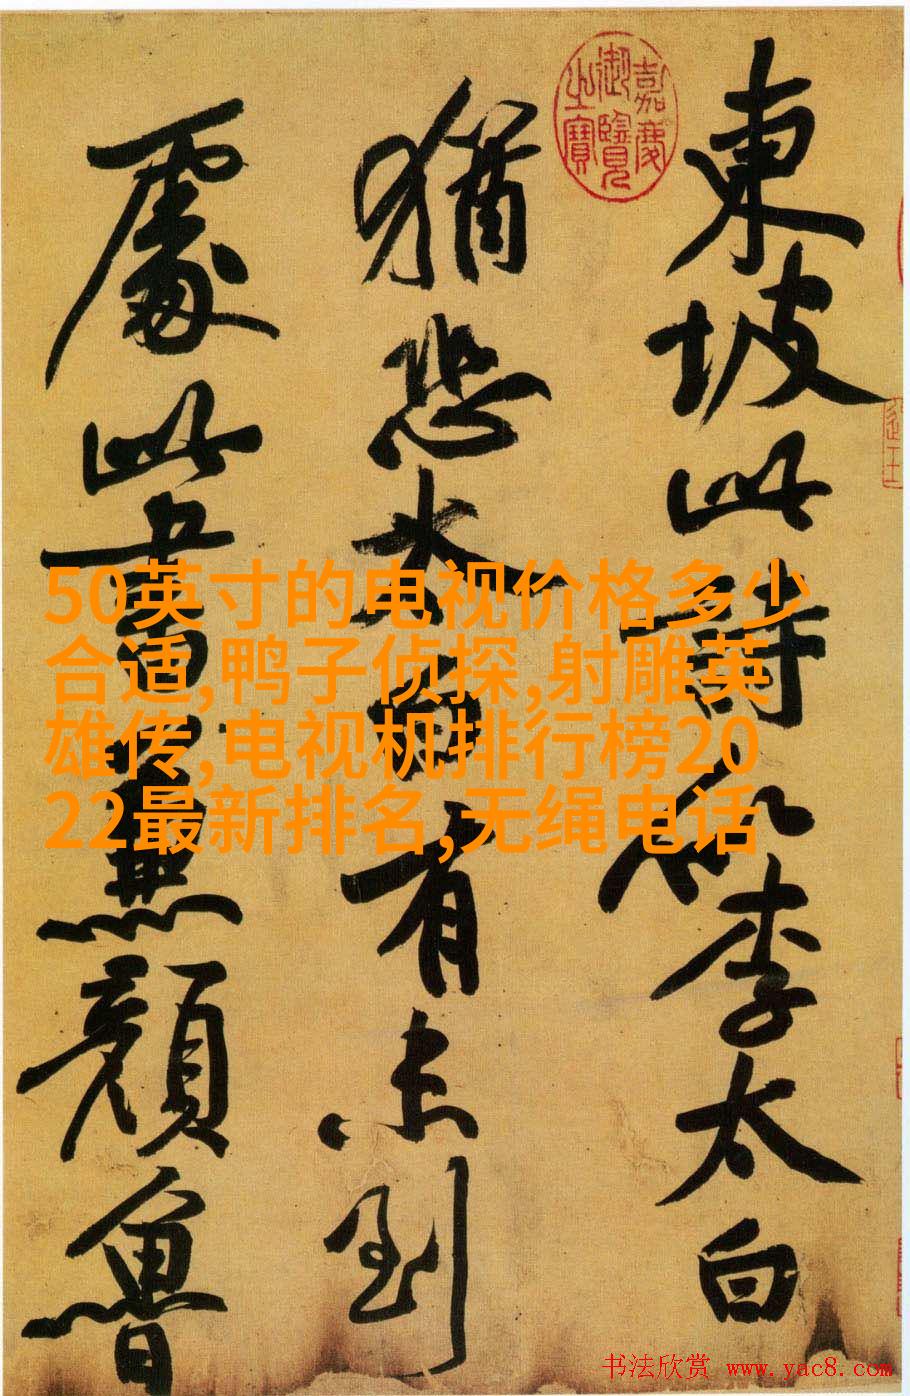 東坡此詩似李太白
猶恐太白有未到
處此書兼顏魯
嘉慶
御覽
之寶
50英寸的电视价格多少
合适,鸭子侦探,射雕英
雄传,电视机排行榜20
22最新排名,无绳电话
书法欣赏 www.yac8.com